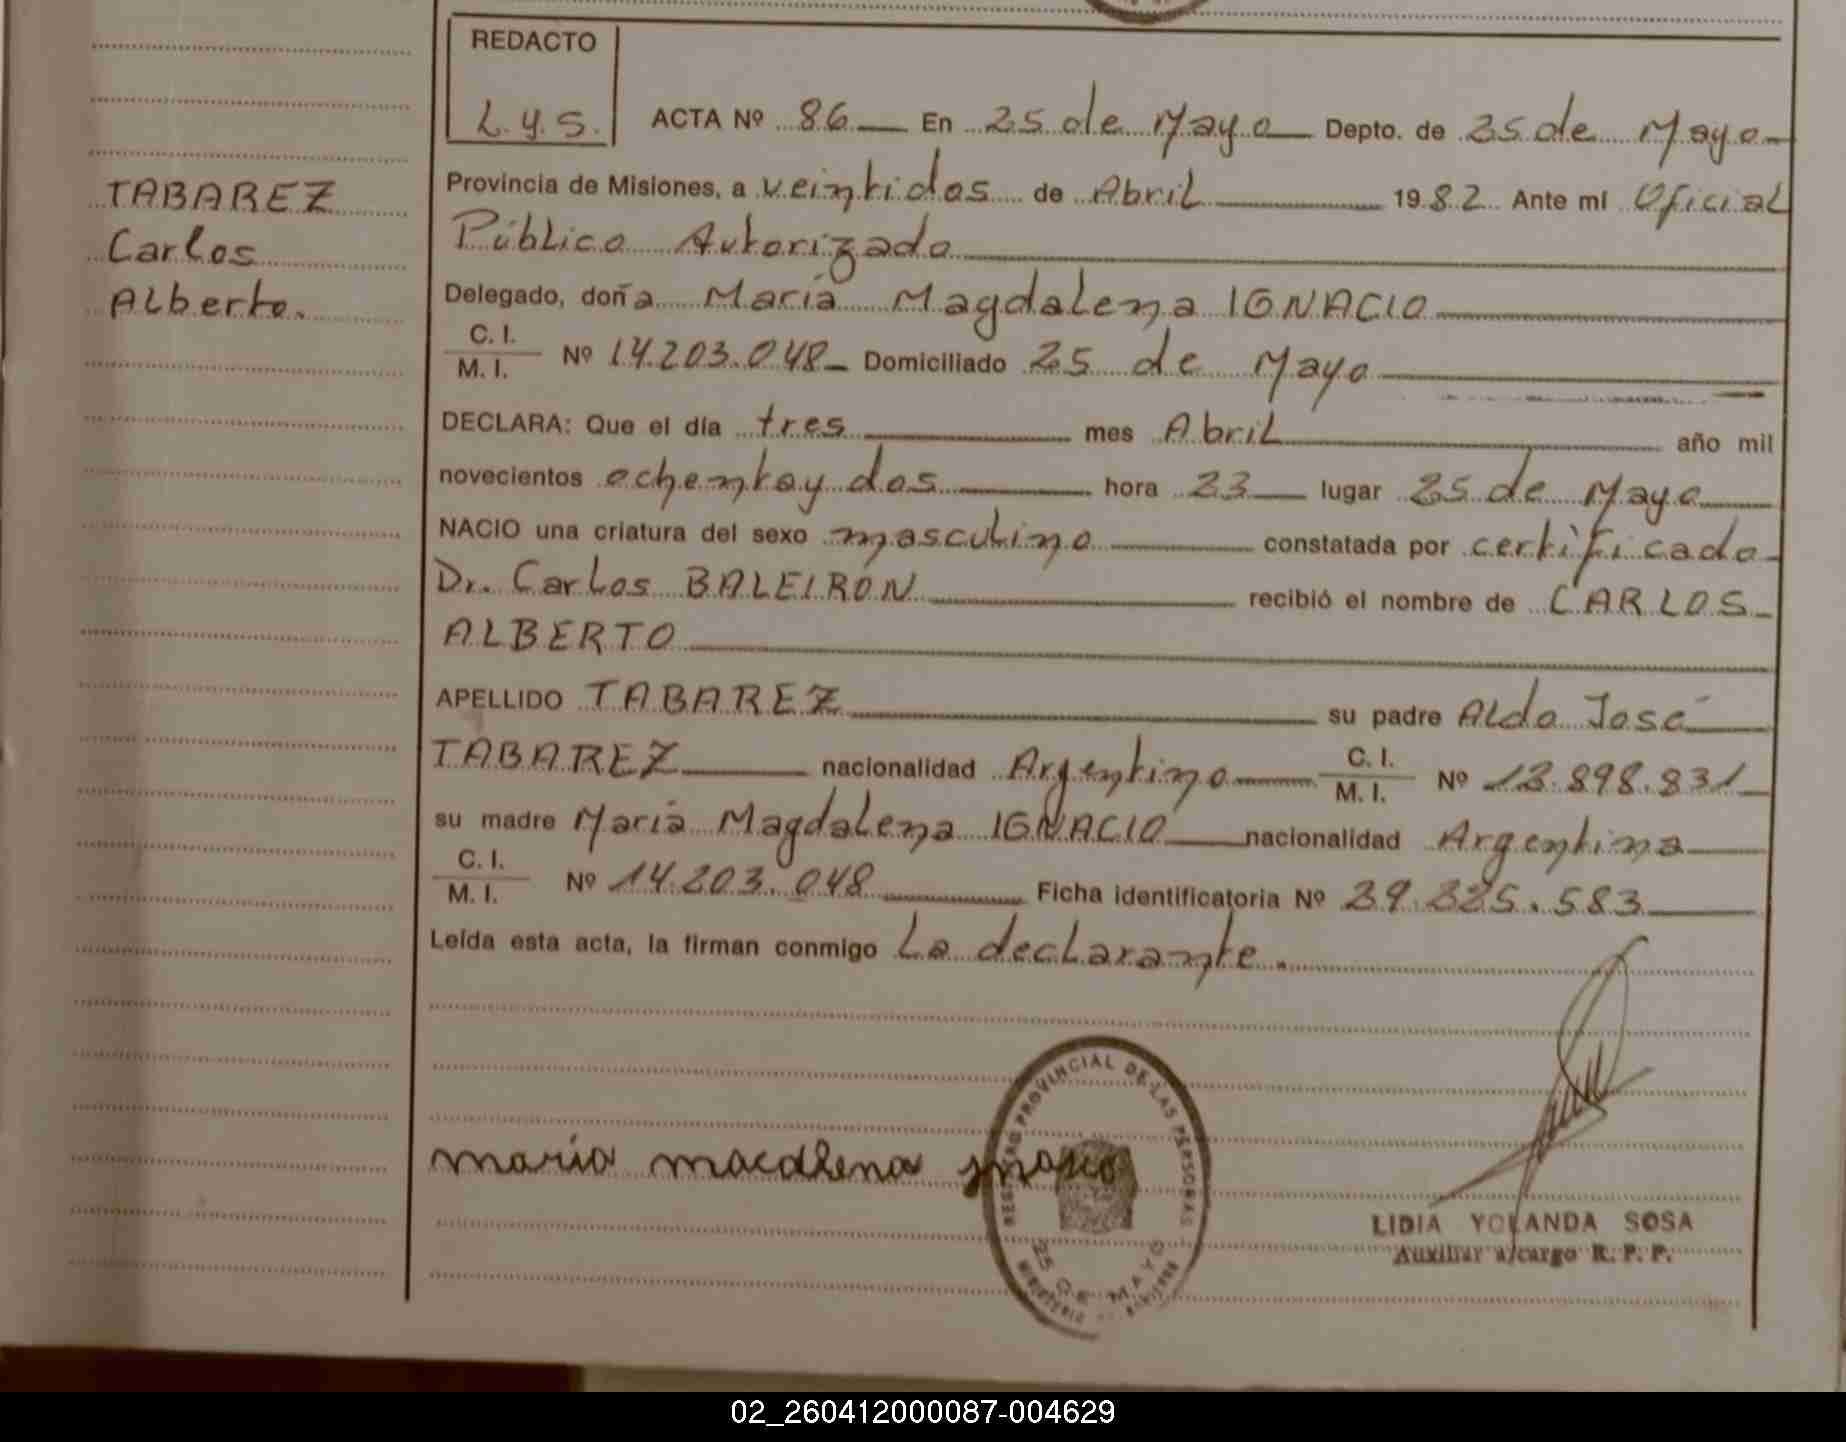 REDACTO
L.y.S. ACTA Nº 86 En 25 de Mayo Depto. de 25 de Mayo
TABAREZ
Carlos
Alberto.
Provincia de Misiones, a veintidos de Abril 1982 Ante mi Oficial
Público Autorizado
Delegado, doña María Magdalena IGNACIO
C. I.
M. I. Nº 14.203.048 Domiciliado 25 de Mayo
DECLARA: Que el día tres mes Abril año mil
novecientos ochenta y dos hora 23 lugar 25 de Mayo
NACIO una criatura del sexo masculino constatada por certificado
Dr. Carlos BALEIRON recibió el nombre de CARLOS
ALBERTO
APELLIDO TABAREZ su padre Aldo José
TABAREZ nacionalidad Argentino C. I. M. I. Nº 13.898.831
su madre María Magdalena IGNACIO nacionalidad Argentina
C. I.
M. I. Nº 14.203.048 Ficha identificatoria Nº 29.325.583
Leída esta acta, la firman conmigo La declarante.
maria macdlena
REGISTRO PROVINCIAL DE LAS PERSONAS
25 DE MAYO
LIDIA YOLANDA SOSA
Auxiliar a/cargo R. P. P.
02_260412000087-004629